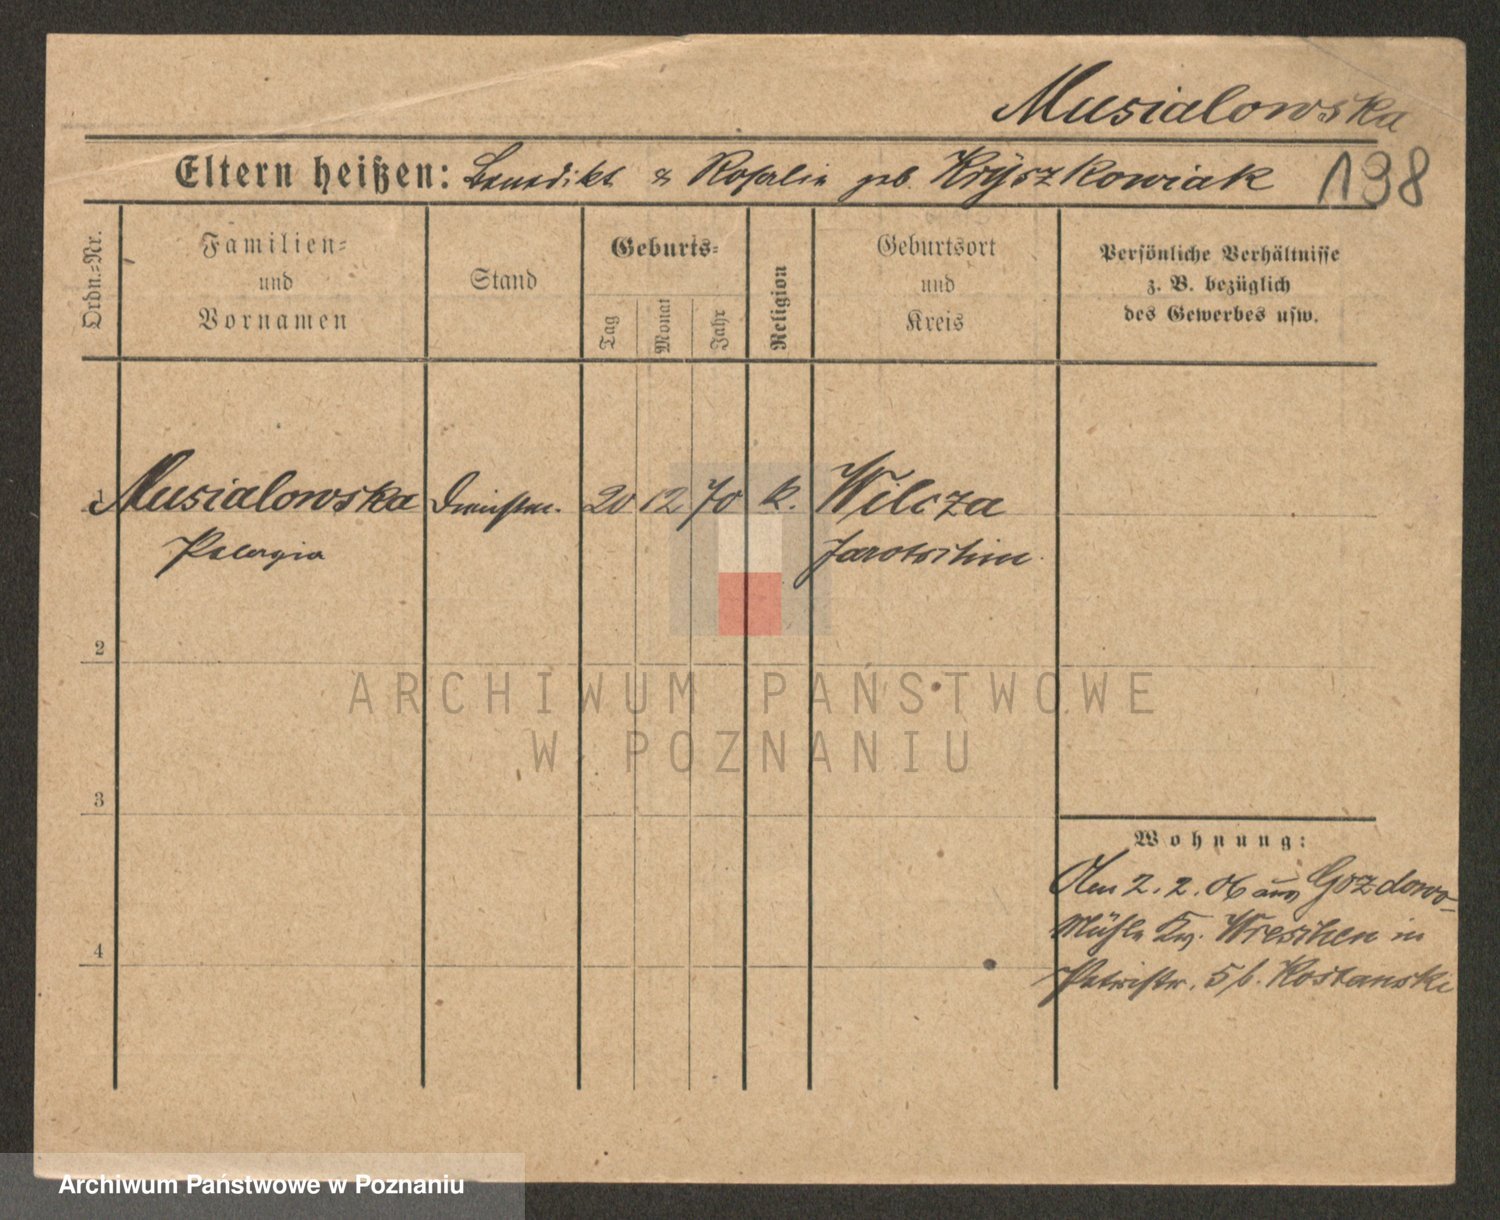 Musialowska
Eltern heißen: Benedikt & Rosalie geb. Kryszkowiak
198
Ordn.-Nr.
Familien-
und
Vornamen
Stand
Geburts-
Tag
Monat
Jahr
Religion
Geburtsort
und
Kreis
Persönliche Verhältnisse
z. B. bezüglich
des Gewerbes usw.
1 Musialowska 20 12 70 k. Wilcza
Pelagia Jarotschin.
2
ARCHIWUM PAŃSTWOWE
W POZNANIU
3
Wohnung:
Am 2. 2. 06 aus Gozdowo-
Mühle Kr. Wreschen in
Patristr. 5 b. Kostanski
4
Archiwum Państwowe w Poznaniu